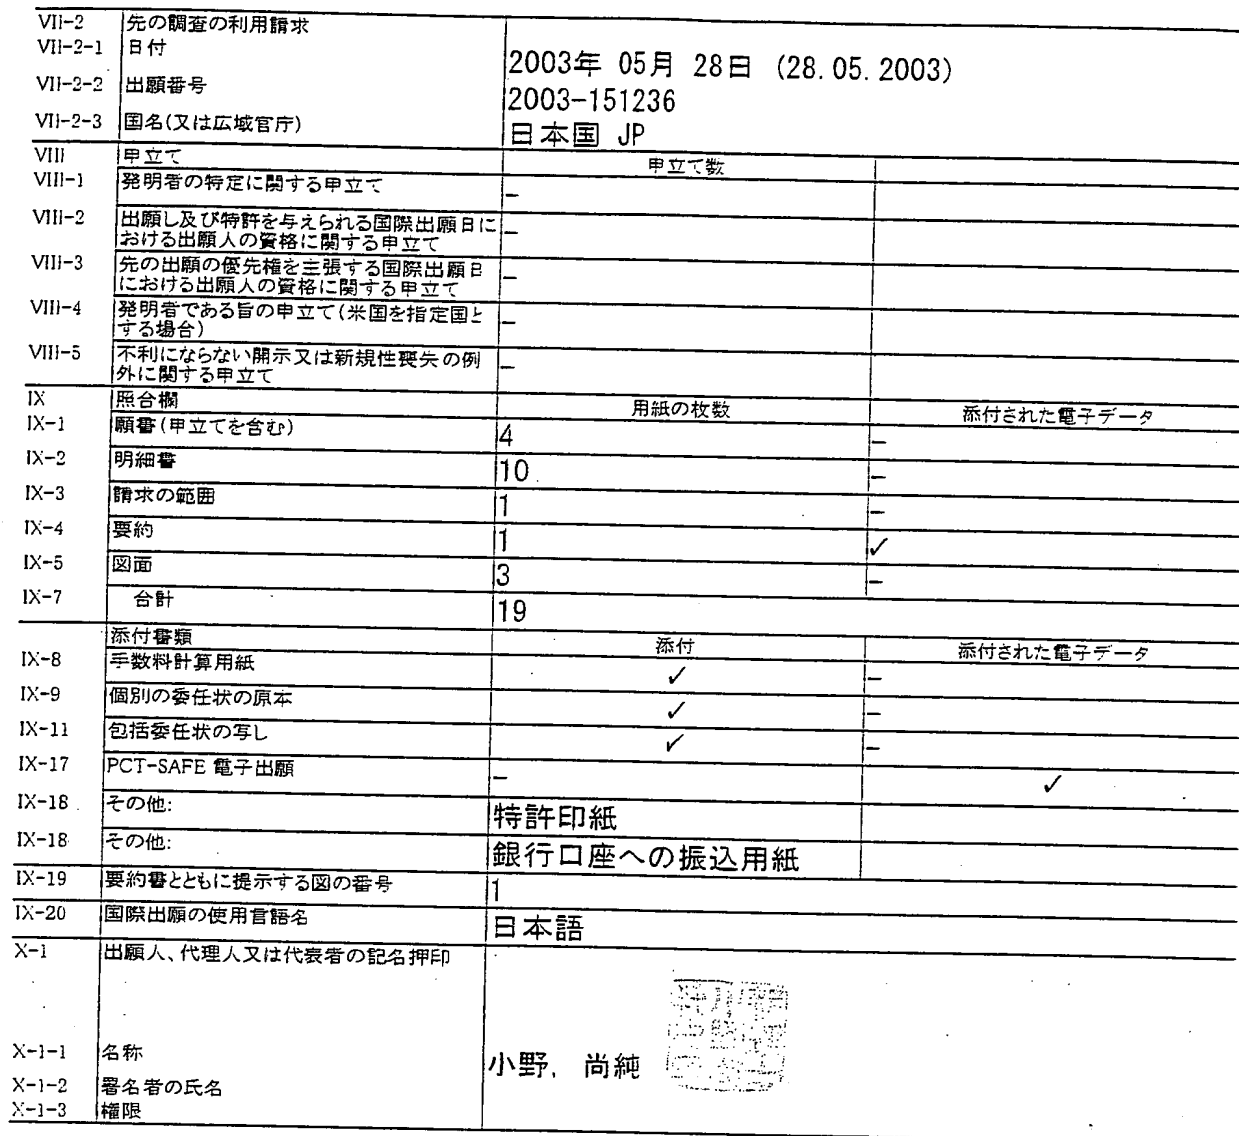 VII-2 先の調査の利用請求
VII-2-1 日付 2003年 05月 28日 (28.05.2003)
VII-2-2 出願番号 2003-151236
VII-2-3 国名(又は広域官庁) 日本国 JP
VIII 申立て 申立て数
VIII-1 発明者の特定に関する申立て -
VIII-2 出願し及び特許を与えられる国際出願日に -
おける出願人の資格に関する申立て
VIII-3 先の出願の優先権を主張する国際出願日 -
における出願人の資格に関する申立て
VIII-4 発明者である旨の申立て(米国を指定国と -
する場合)
VIII-5 不利にならない開示又は新規性喪失の例 -
外に関する申立て
IX 照合欄 用紙の枚数 添付された電子データ
IX-1 願書(申立てを含む) 4 -
IX-2 明細書 10 -
IX-3 請求の範囲 1 -
IX-4 要約 1 ✓
IX-5 図面 3 -
IX-7 合計 19
添付書類 添付 添付された電子データ
IX-8 手数料計算用紙 ✓ -
IX-9 個別の委任状の原本 ✓ -
IX-11 包括委任状の写し ✓ -
IX-17 PCT-SAFE 電子出願 - ✓
IX-18 その他: 特許印紙
IX-18 その他: 銀行口座への振込用紙
IX-19 要約書とともに提示する図の番号 1
IX-20 国際出願の使用言語名 日本語
X-1 出願人、代理人又は代表者の記名押印
X-1-1 名称 小野, 尚純
X-1-2 署名者の氏名
X-1-3 権限